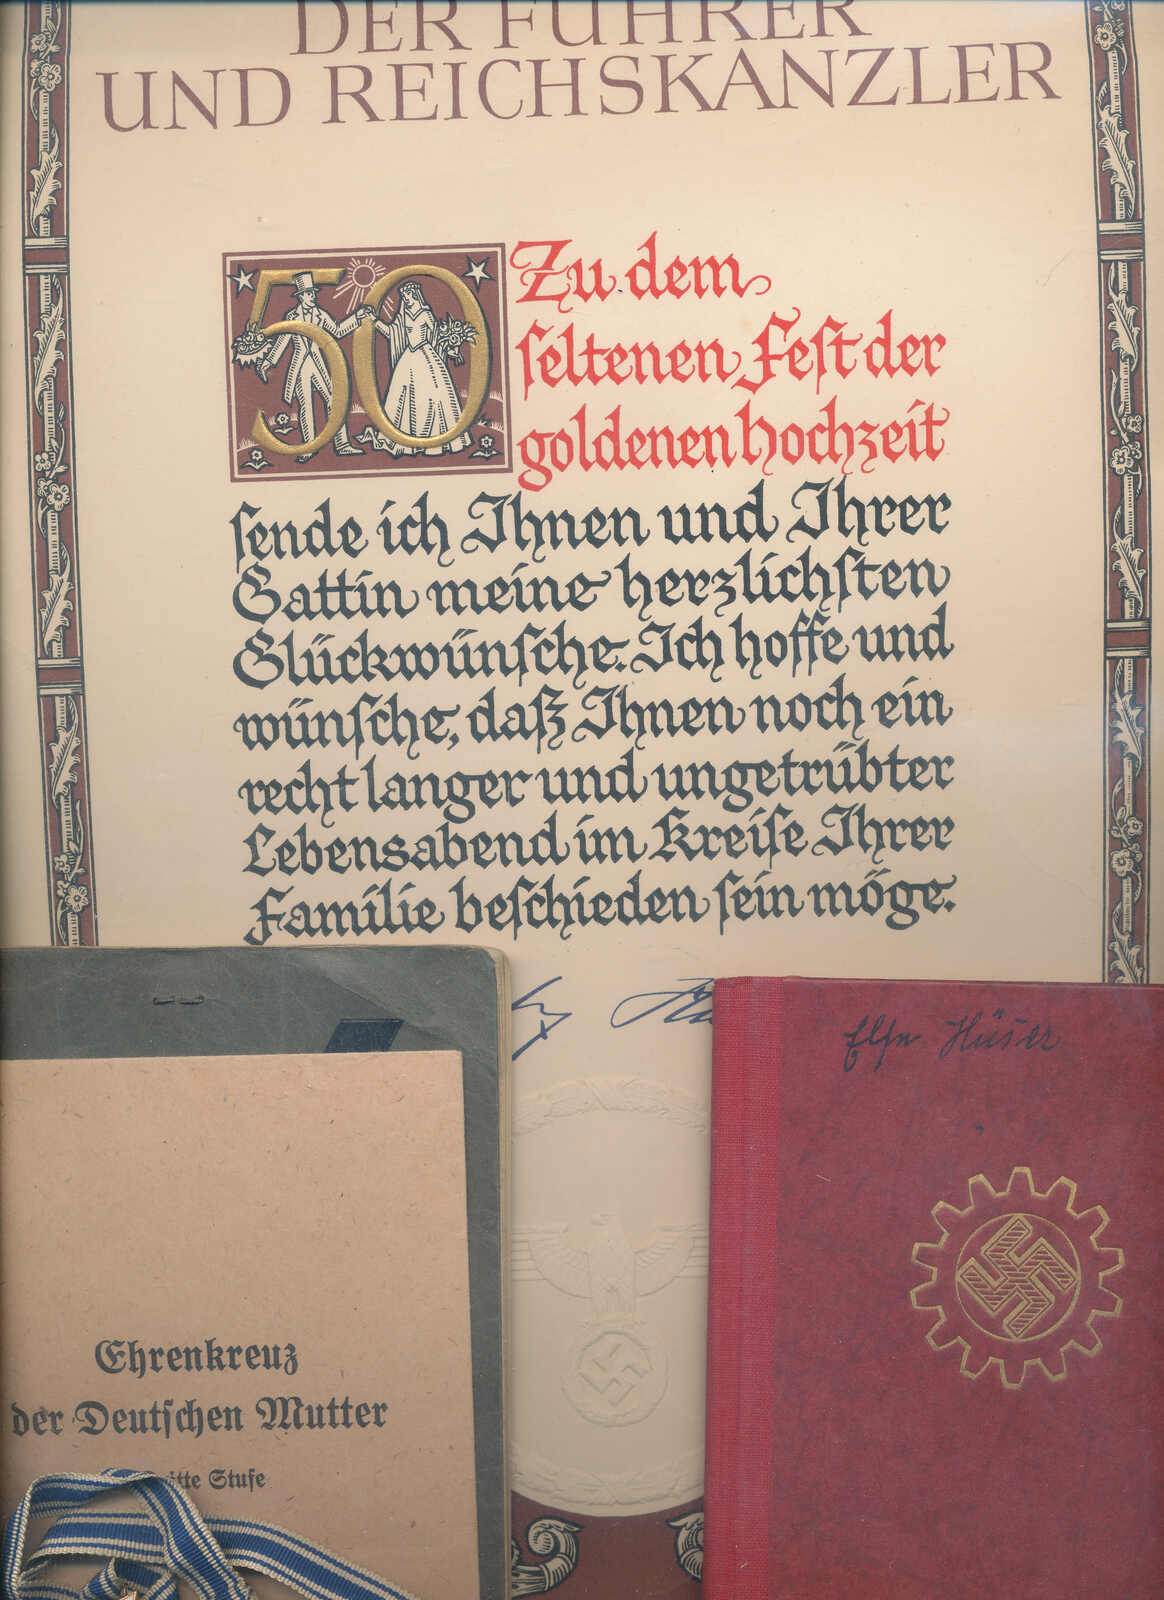 DER FÜHRER
UND REICHSKANZLER
50
Zu dem
seltenen Fest der
goldenen Hochzeit
sende ich Ihnen und Ihrer
Gattin meine herzlichsten
Glückwünsche. Ich hoffe und
wünsche, daß Ihnen noch ein
recht langer und ungetrübter
Lebensabend im Kreise Ihrer
Familie beschieden sein möge.
Else Hüser
Ehrenkreuz
der Deutschen Mutter
Stufe